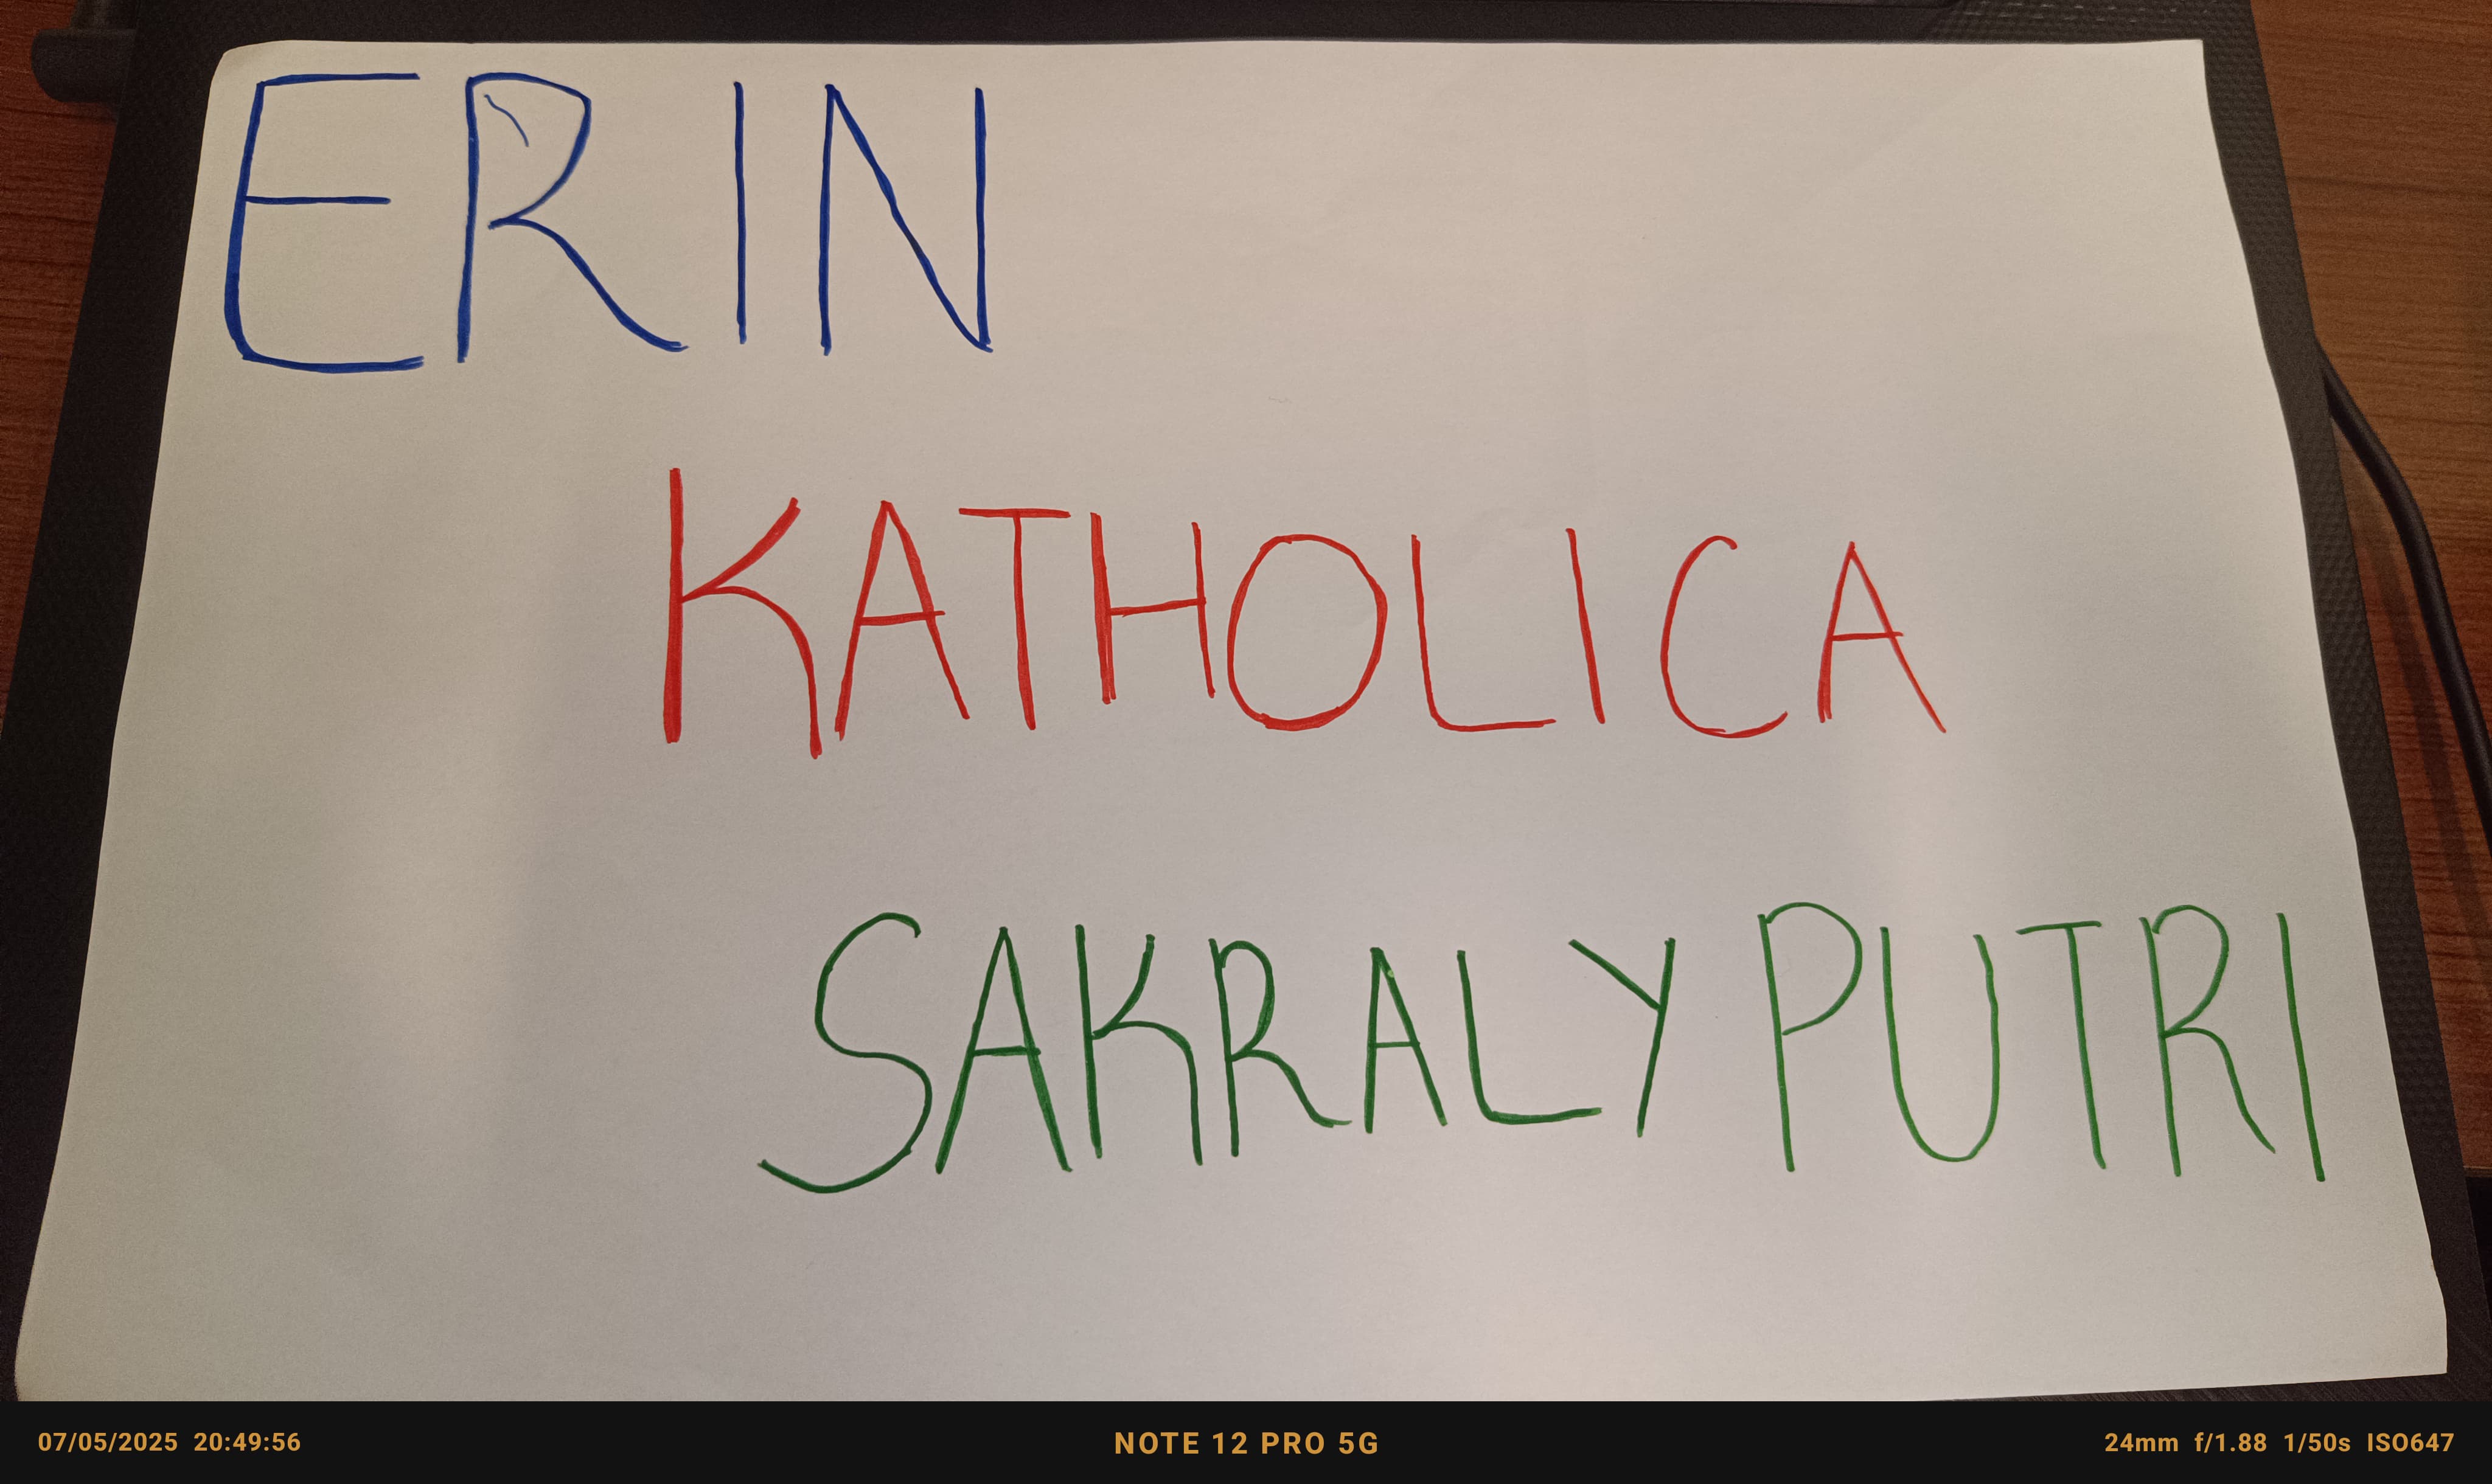 ERIN
KATHOLICA
SAKRALY PUTRI
07/05/2025 20:49:56 NOTE 12 PRO 5G 24mm f/1.88 1/50s ISO647